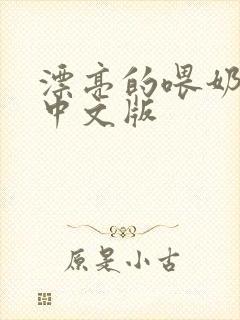 漂亮的喂奶
中文版
原是小古